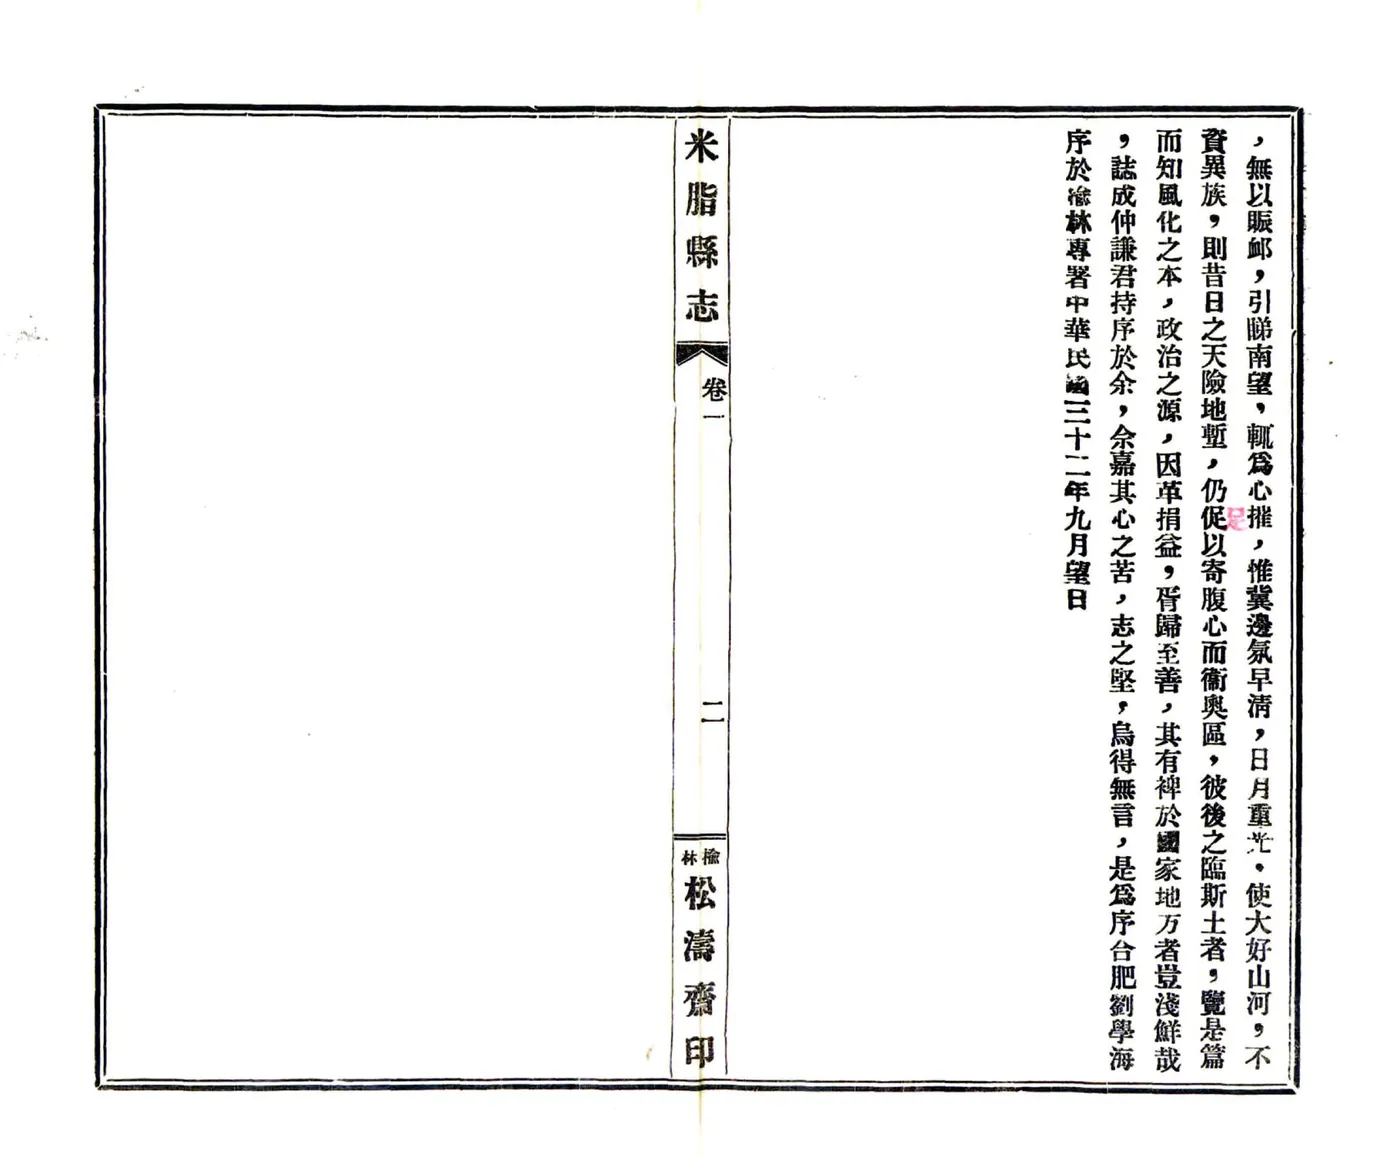 ，無以賑邮，引睇南望，輒爲心摧，惟冀邊氛早清，日月重光．使大好山河，不
資異族，則昔日之天險地塹，仍促以寄腹心而衞奥區，彼後之臨斯土者，覽是篇
足
而知風化之本，政治之源，因革捐益，胥歸至善，其有裨於國家地万者豈淺鮮哉
，誌成仲謙君持序於余，余嘉其心之苦，志之堅，烏得無言，是爲序合肥劉學海
序於榆林專署中華民國三十二年九月望日
米脂縣志
卷一
二
榆林
松濤齋印